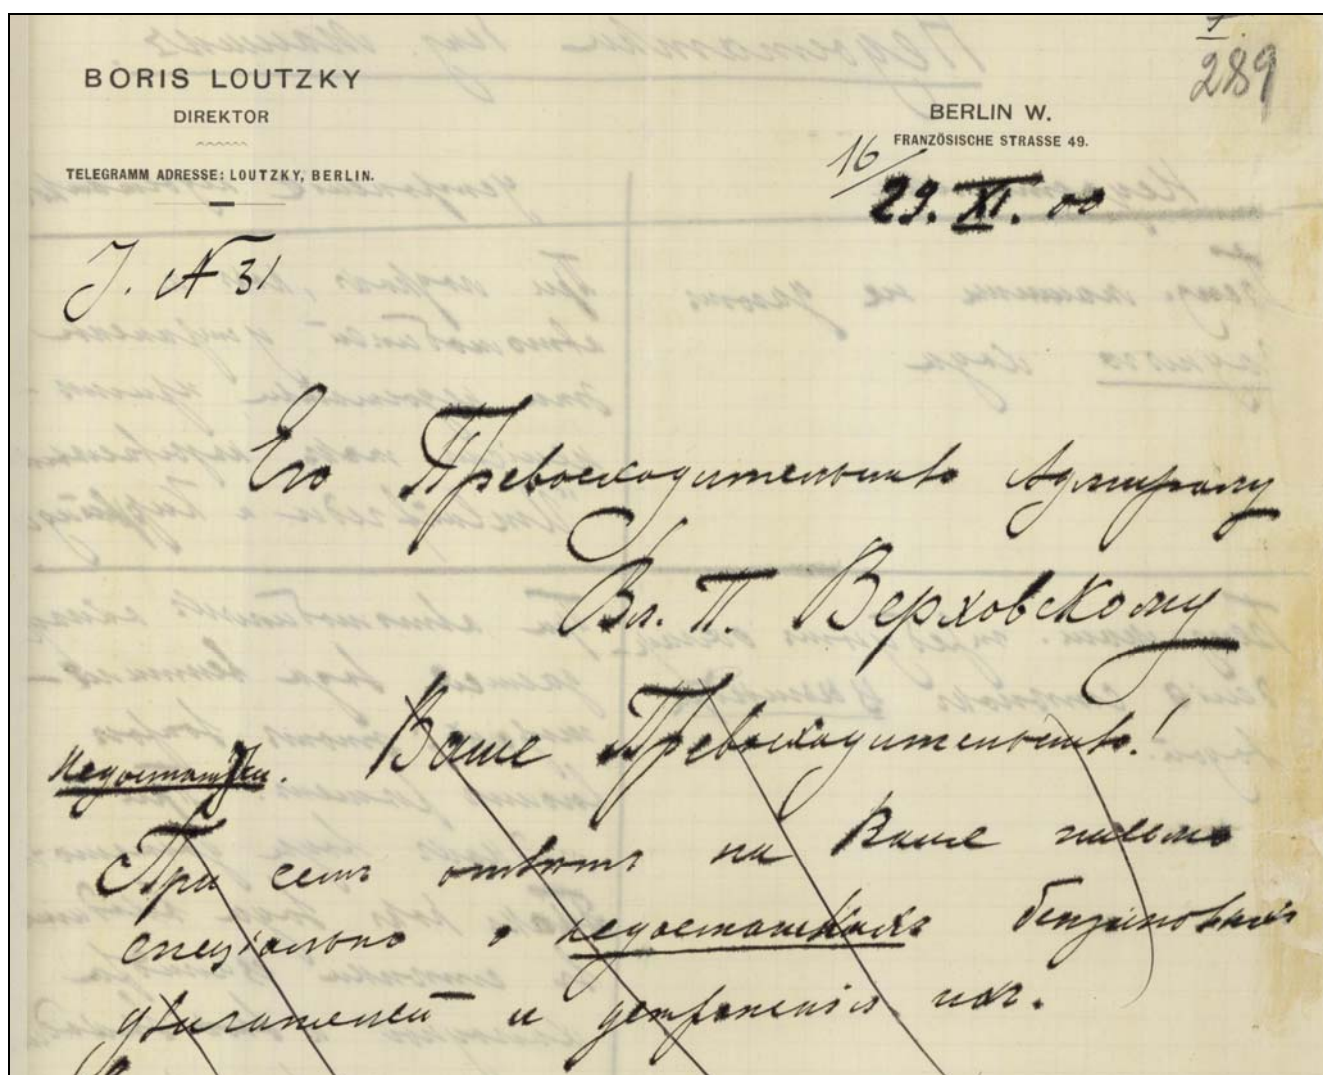 BORIS LOUTZKY
DIREKTOR
TELEGRAMM ADRESSE: LOUTZKY, BERLIN.
I.
289
BERLIN W.
FRANZÖSISCHE STRASSE 49.
16/
29. XI. 00
J. № 31
Его Превосходительству Адмиралу
Вл. П. Верховскому
Ваше Превосходительство!
Недостатки.
При семъ ответъ на Ваше письмо
спеціально о недостаткахъ бензиновыхъ
двигателей и устраненія ихъ.